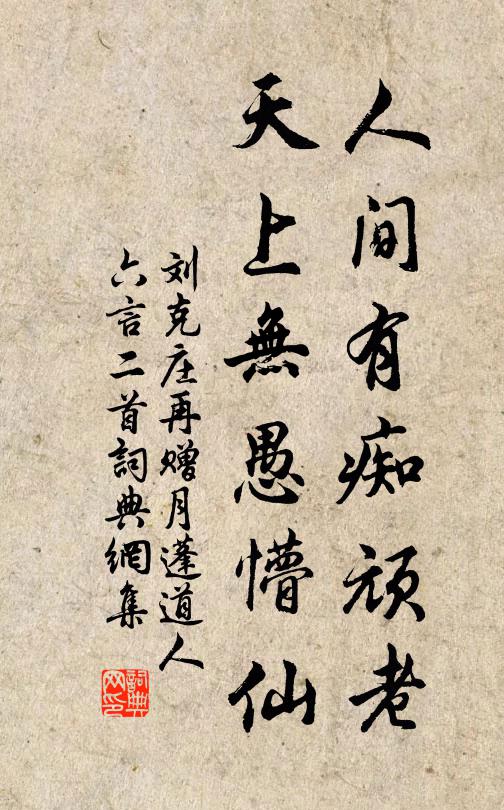 人间有痴顽老
天上無愚懵仙
刘克庄再赠月蓬道人
六言二首詞典網集
詞典
网印